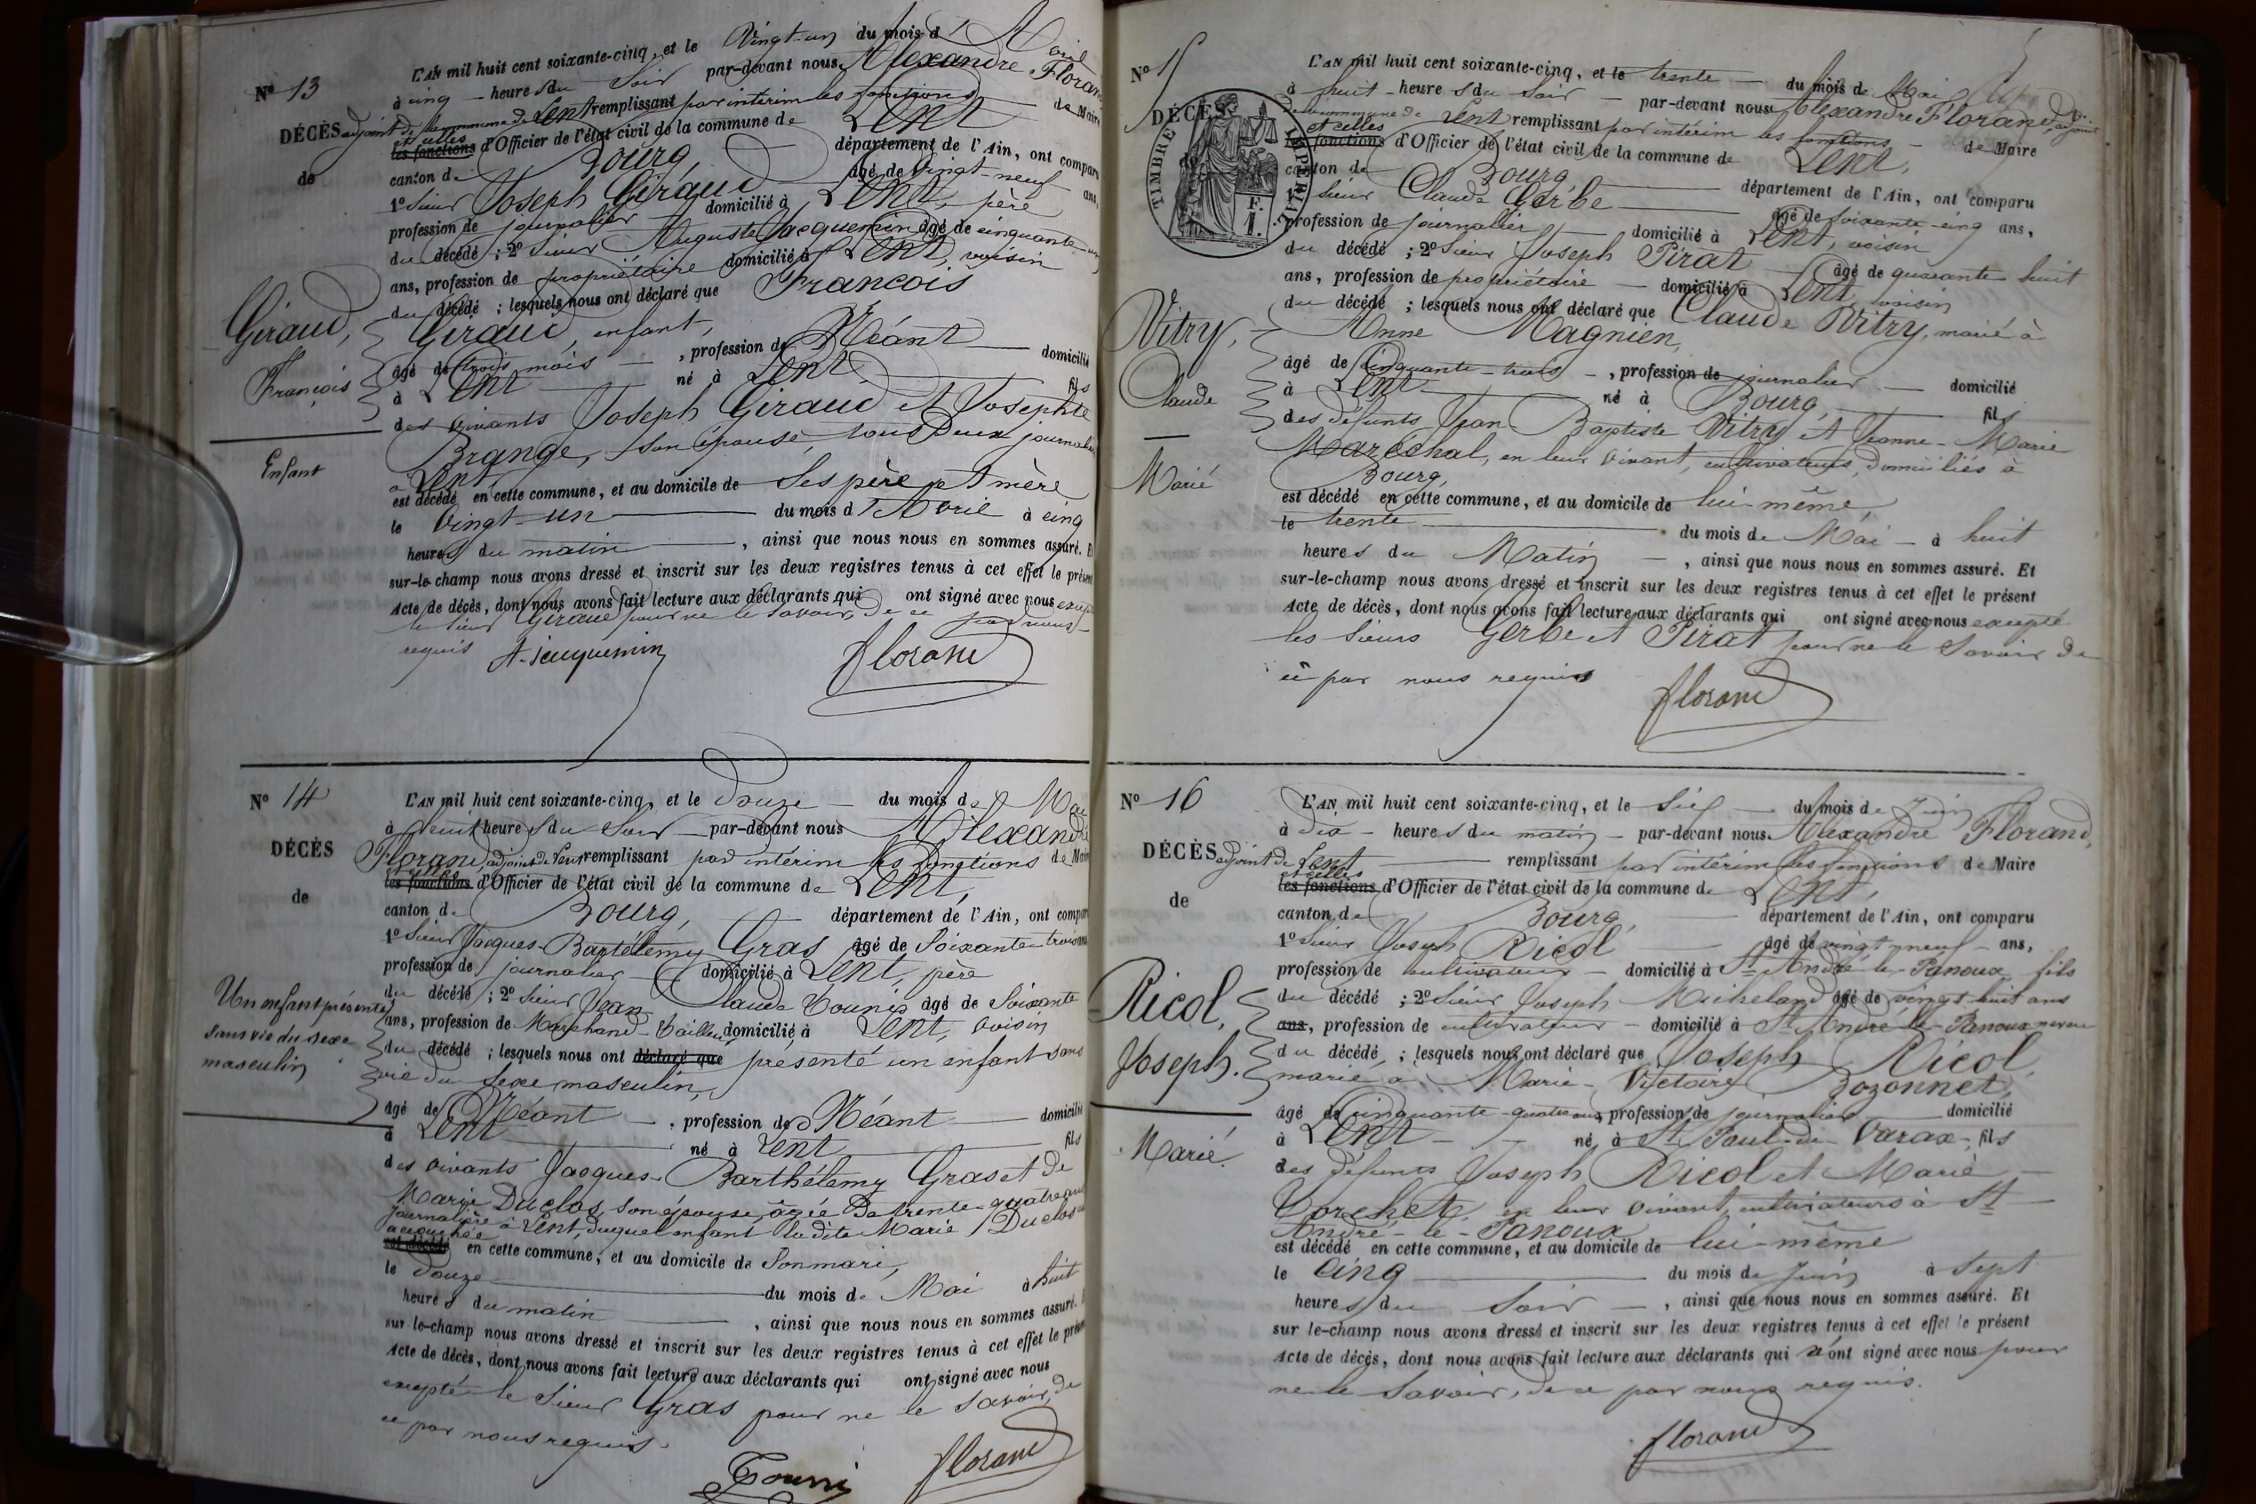 N° 13
DÉCÈS
de
Giraud,
François
Enfant
L'AN mil huit cent soixante-cinq, et le Vingt-un du mois d'Avril
à cinq heures du Soir par-devant nous Alexandre Florand
adjoint de la commune de Lent remplissant par intérim les fonctions de Maire
et celles
les fonctions d'Officier de l'état civil de la commune de Lent
canton de Bourg, département de l'Ain, ont comparu
1° Sieur Joseph Giraud âgé de Vingt-neuf ans,
profession de journalier domicilié à Lent, père
du décédé ; 2° Sieur Auguste Jacquemin âgé de cinquante-un
ans, profession de propriétaire domicilié à Lent, voisin
du décédé ; lesquels nous ont déclaré que François
Giraud, enfant,
âgé de trois mois , profession de Néant domicilié
à Lent né à Lent fils
des vivants Joseph Giraud et Josephte
Brange, son épouse, tous deux journaliers
à Lent,
est décédé en cette commune, et au domicile de Ses père et mère
le Vingt-un du mois d'Avril à cinq
heures du matin , ainsi que nous nous en sommes assuré. Et
sur-le-champ nous avons dressé et inscrit sur les deux registres tenus à cet effet le présent
Acte de décès, dont nous avons fait lecture aux déclarants qui ont signé avec nous excepté
le sieur Giraud pour ne le savoir, de ce par nous
requis
A. Jacquemin Florand
N° 14
DÉCÈS
de
Un enfant présenté
sans vie du sexe
masculin
L'AN mil huit cent soixante-cinq, et le Douze du mois de Mai
à huit heures du Soir par-devant nous Alexandre
Florand adjoint de Lent remplissant par intérim les fonctions de Maire
et celles
les fonctions d'Officier de l'état civil de la commune de Lent,
canton de Bourg, département de l'Ain, ont comparu
1° Sieur Jacques-Bartélemy Gras âgé de Soixante-trois ans
profession de journalier domicilié à Lent, père
du décédé ; 2° Sieur Jean Claude Tournis âgé de Soixante
ans, profession de Marchand-Tailleur domicilié à Lent, voisin
du décédé ; lesquels nous ont déclaré que présenté un enfant sans
vie du sexe masculin,
âgé de Néant , profession de Néant domicilié
à Lent né à Lent fils
des vivants Jacques-Barthélemy Gras et de
Marie Duclos, son épouse, âgée de trente-quatre ans
journalière à Lent, duquel enfant la dite Marie Duclos
accouchée
est décédé en cette commune, et au domicile de Son mari,
le Douze du mois de Mai à huit
heures du matin , ainsi que nous nous en sommes assuré. Et
sur le-champ nous avons dressé et inscrit sur les deux registres tenus à cet effet le présent
Acte de décès, dont nous avons fait lecture aux déclarants qui ont signé avec nous
excepté le Sieur Gras pour ne le savoir, de
ce par nous requis.
Florand
N° 15
DÉCÈS
TIMBRE IMPÉRIAL
F.
1.
Vitry,
Claude
Marié
L'AN mil huit cent soixante-cinq, et le trente du mois de Mai
à huit heures du Soir par-devant nous Alexandre Florand, adjoint
de la commune de Lent remplissant par intérim les fonctions de Maire
et celles
les fonctions d'Officier de l'état civil de la commune de Lent,
canton de Bourg département de l'Ain, ont comparu
1° Sieur Claude Gerbe âgé de soixante-cinq ans,
profession de journalier domicilié à Lent, voisin
du décédé ; 2° Sieur Joseph Pirat âgé de quarante-huit
ans, profession de propriétaire domicilié à Lent, voisin
du décédé ; lesquels nous ont déclaré que Claude Vitry, marié à
Anne Magnien,
âgé de Cinquante-trois , profession de journalier domicilié
à Lent né à Bourg, fils
des défunts Jean Baptiste Vitry et Jeanne-Marie
Maréchal, en leur vivant, cultivateurs, domiciliés à
Bourg,
est décédé en cette commune, et au domicile de lui-même,
le trente du mois de Mai à huit
heures du Matin , ainsi que nous nous en sommes assuré. Et
sur-le-champ nous avons dressé et inscrit sur les deux registres tenus à cet effet le présent
Acte de décès, dont nous avons fait lecture aux déclarants qui ont signé avec nous excepté
les sieurs Gerbe et Pirat pour ne le savoir de
ce par nous requis
Florand
N° 16
DÉCÈS
de
Ricol,
Joseph.
Marié.
L'AN mil huit cent soixante-cinq, et le Six du mois de Juin
à dix heures du matin par-devant nous Alexandre Florand,
adjoint de Lent remplissant par intérim les fonctions de Maire
et celles
les fonctions d'Officier de l'état civil de la commune de Lent,
canton de Bourg, département de l'Ain, ont comparu
1° Sieur Joseph Ricol âgé de vingt-neuf ans,
profession de cultivateur domicilié à St André-le-Panoux fils
du décédé ; 2° Sieur Joseph Micheland âgé de vingt huit ans
ans, profession de cultivateur domicilié à St André-le-Panoux neveu
du décédé ; lesquels nous ont déclaré que Joseph Ricol,
marié à Marie-Victoire Bozonnet,
âgé de cinquante-quatre ans, profession de journalier domicilié
à Lent né à St Paul-de-Varax, fils
des défunts Joseph Ricol et Marie
en leur vivant, cultivateurs à St
André-le-Panoux
est décédé en cette commune, et au domicile de lui-même
le Cinq du mois de Juin à Sept
heures du Soir , ainsi que nous nous en sommes assuré. Et
sur le-champ nous avons dressé et inscrit sur les deux registres tenus à cet effet le présent
Acte de décès, dont nous avons fait lecture aux déclarants qui n'ont signé avec nous pour
ne le Savoir, de ce par nous requis.
Florand